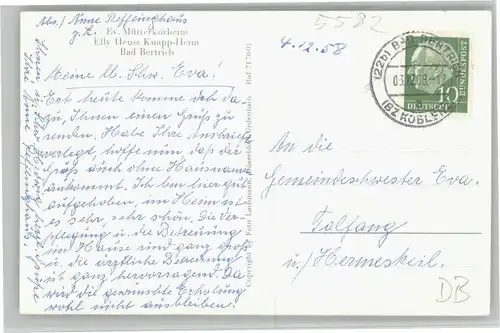 Abs./ Anne Reffeinghaus
z. Z.
Ev. Mütterkurheim
Elly Heuss Knapp-Heim
Bad Bertrich
5582
4.12.58
(22b) BAD BERTRICH
03.12.58
(BZ KOBLENZ)
DEUTSCHE BUNDESPOST
10
Meine lb. Schw. Eva!
Erst heute komme ich da-
zu, Ihnen einen Gruß zu
senden. Habe Ihre Anschrift
verlegt, hoffe nun, daß die
Gruß auch ohne Hausnum.
ankommt. Ich bin hier gut
aufgehoben, im Heim ist
es sehr, sehr schön. Die Ver-
pflegung u. die Betreuung
im Hause sind ganz groß
u. die ärztliche Betreuung
ist ganz hervorragend. Da
wird die gewünschte Erholung
wohl nicht ausbleiben.
Ihnen
herzl. Grüße
Ihre Anne Reffeinghaus
Copyright by Foto Lachmund, Düsseldorf
Ruf
An die
Gemeindeschwester Eva.
Talfang
ü/Hermeskeil.
DB